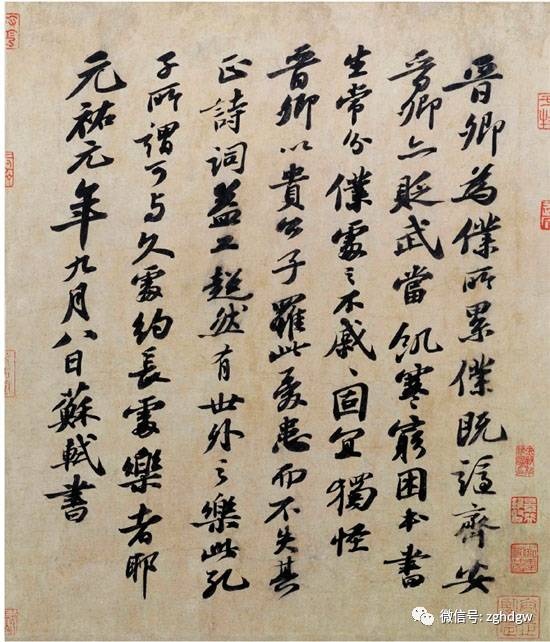 晉卿為僕所累僕既謫齊安
晉卿亦貶武當飢寒窮困本書
生常分僕處之不戚戚固宜獨怪
晉卿以貴公子罹此憂患而不失其
正詩詞益工超然有世外之樂此孔
子所謂可与久處約長處樂者耶
元祐元年九月八日蘇軾書
微信号: zghdgw